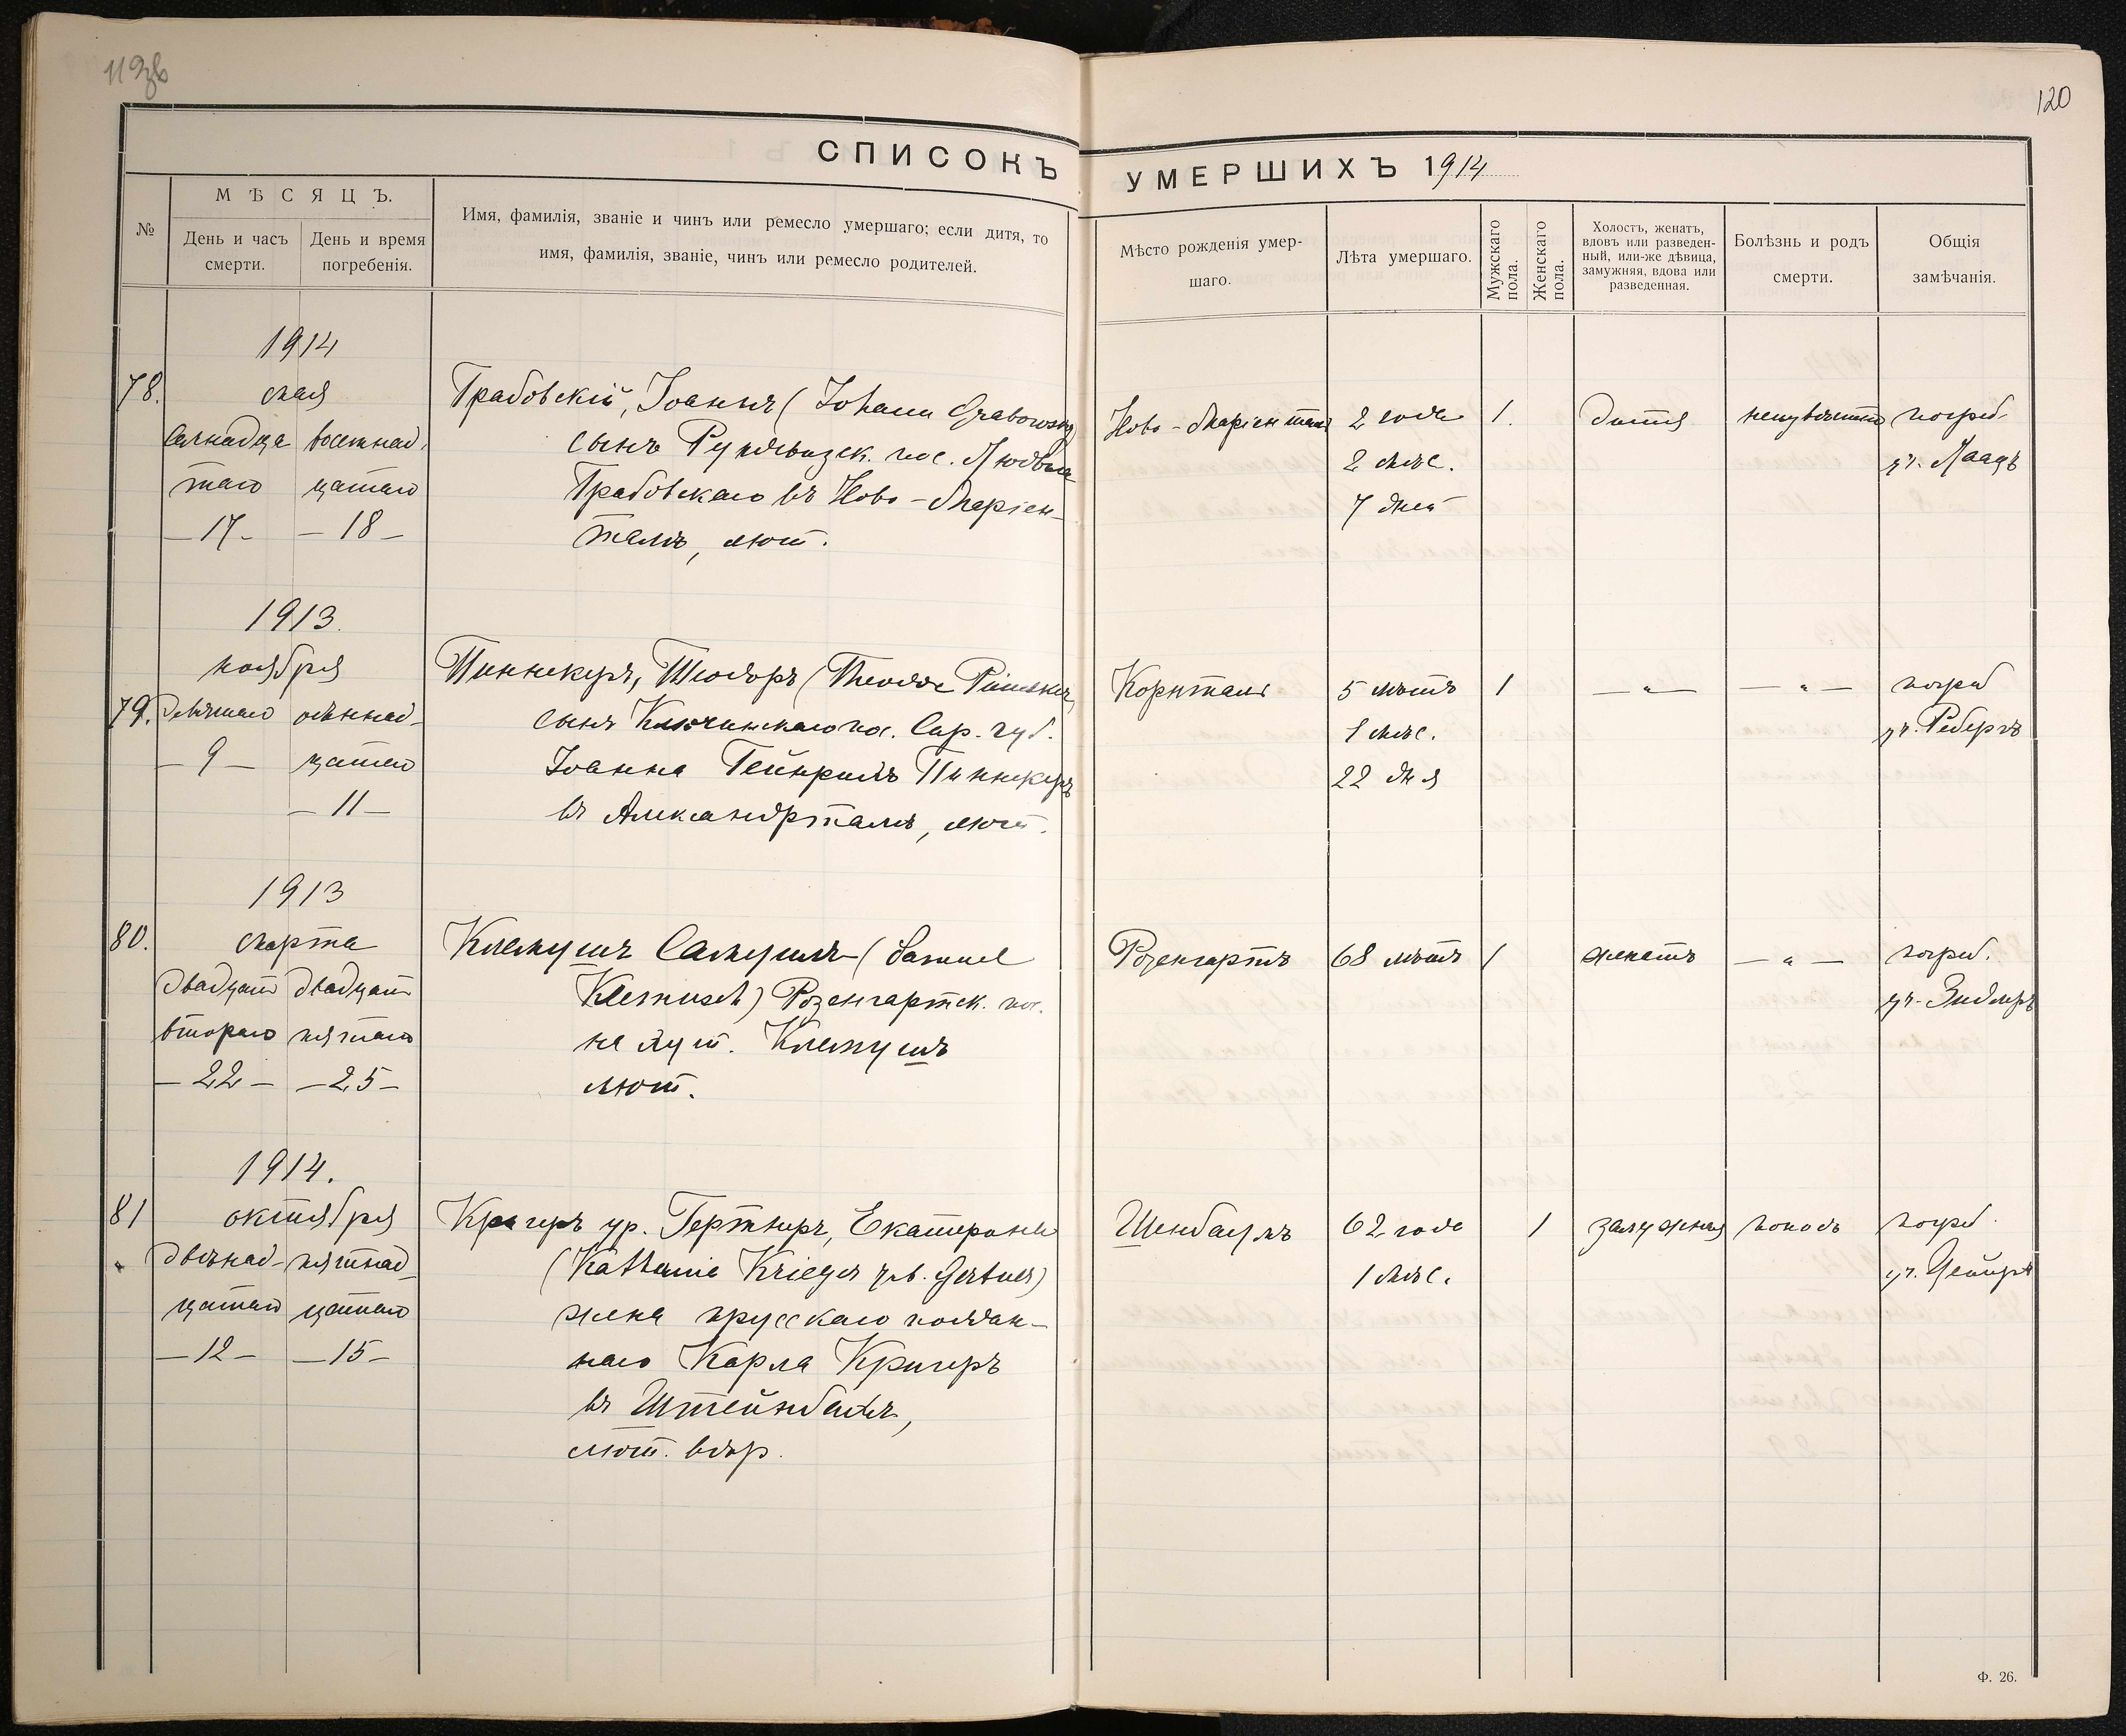 119б
120
СПИСОКЪ УМЕРШИХЪ 1914
№
МѢСЯЦЪ.
День и часъ смерти.
День и время погребенія.
Имя, фамилія, званіе и чинъ или ремесло умершаго; если дитя, то
имя, фамилія, званіе, чинъ или ремесло родителей.
Мѣсто рожденія умер-
шаго.
Лѣта умершаго.
Мужскаго пола.
Женскаго пола.
Холостъ, женатъ,
вдовъ или разведен-
ный, или-же дѣвица,
замужняя, вдова или
разведенная.
Болѣзнь и родъ
смерти.
Общія
замѣчанія.
1914
78. мая
Грабовскій, Іоаннъ (Johann Grabowsky)
сынъ пос.
Грабовскаго въ Ново-Маріен-
талѣ, лют.
— 17 — — 18 —
Ново-Маріенталь
2 года
2 мѣс.
7 дней
1.
дитя
неизвѣстно
погреб.
уч. Лаагъ
1913.
ноября
79. девятаго одиннад-
цатаго
— 9 —
— 11 —
Пиннекеръ, Теодоръ (Theodor Pinneker,
сынъ пос. Сар. губ.
Іоанна Гейнриха Пиннекеръ
въ Александрталѣ, лют.
Корнталь
5 лѣтъ
1 мѣс.
22 дня
1
— „ —
— „ —
погреб
уч. Реберъ
1913
80. марта
двадцать двадцать
второго пятаго
— 22 — — 25 —
Клемушъ Самуилъ (Samuel
Klemusch) Розенгартск. пос.
Клемушъ
лют.
Розенгартъ
68 лѣтъ
1
женатъ
— „ —
погреб.
уч. Зидлеръ
1914.
81 октября
двѣнад- пятнад-
цатаго цатаго
— 12 — — 15 —
Кригеръ ур. Гертнеръ, Екатерина
(Katharina Krieger geb. Gertner)
жена прусскаго поддан-
наго Карла Кригеръ
въ Штейнбахѣ,
лют. вѣр.
Шенбаумъ
62 года
1 мѣс.
1
замужняя
погреб.
Ф. 26.